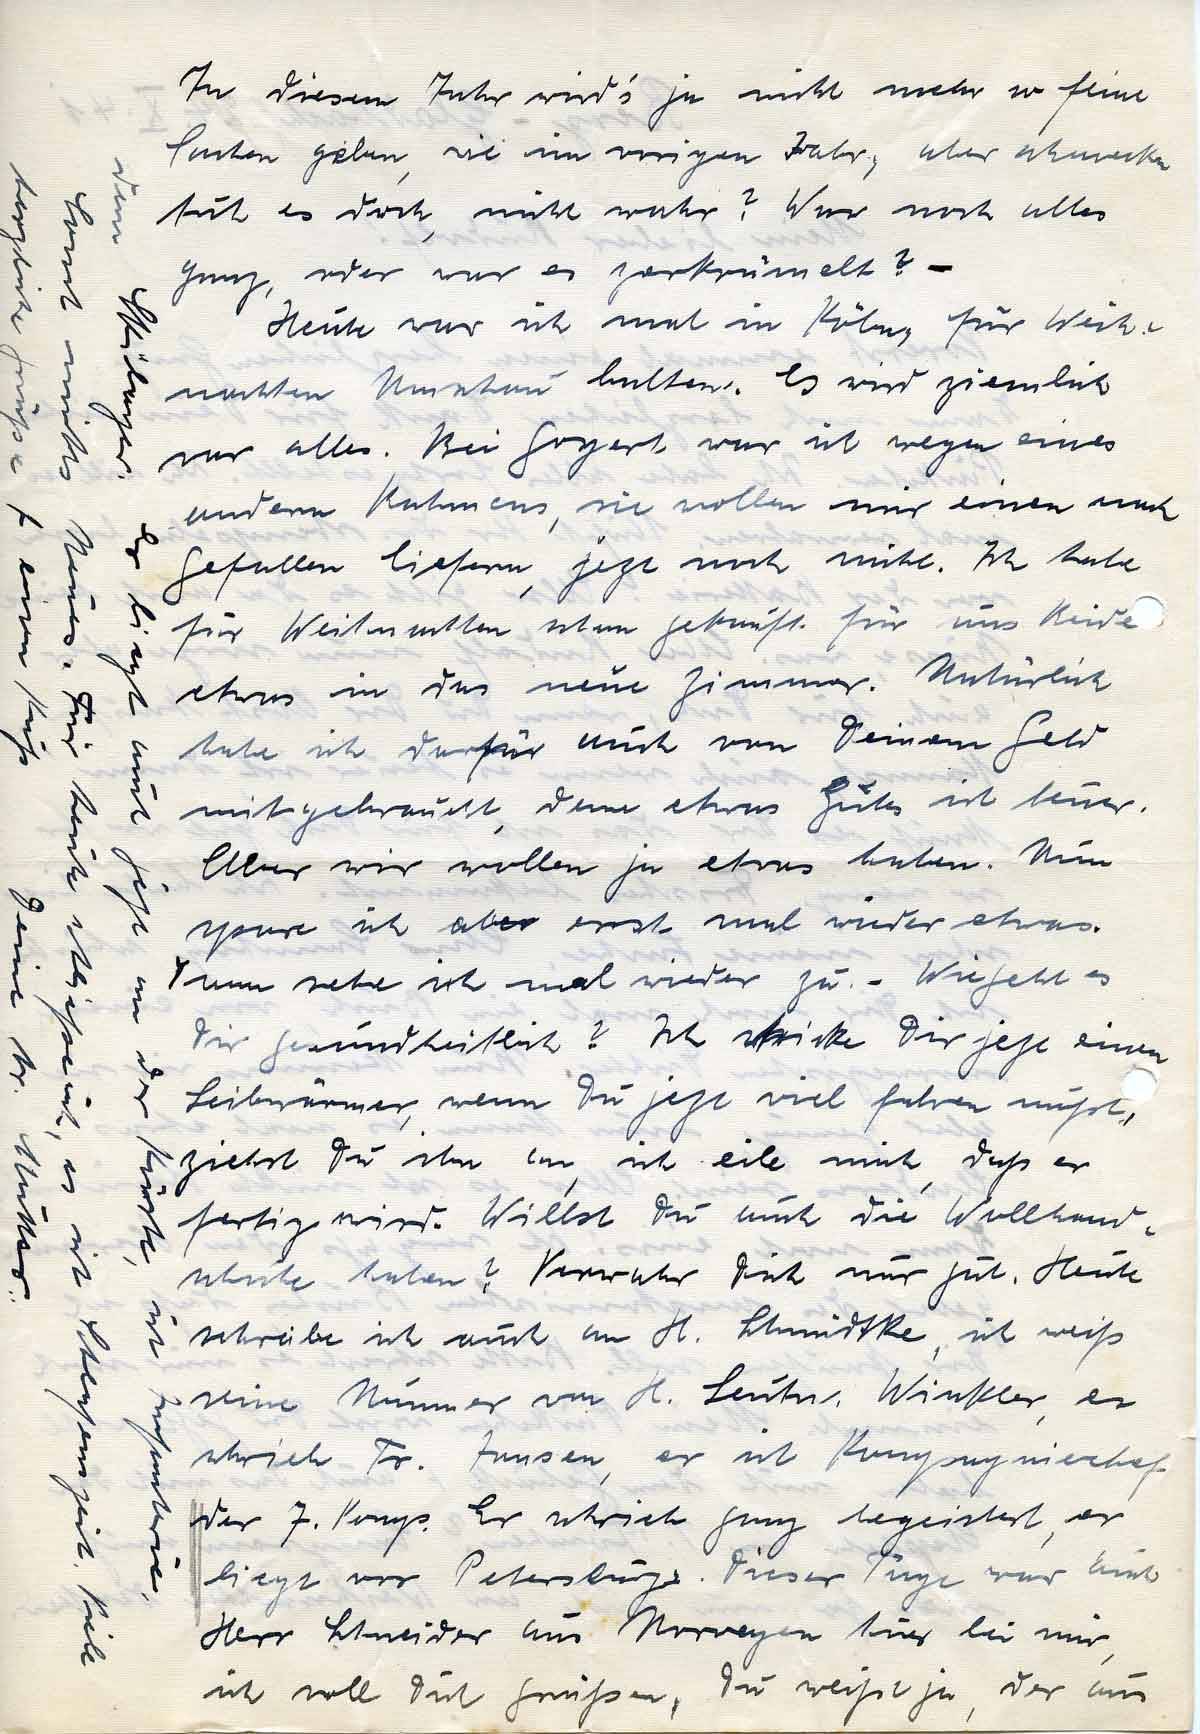 In diesem Jahr wird's ja nicht mehr so feine
Sachen geben, wie im vorigen Jahr, aber schmecken
tut es doch, nicht wahr? War noch alles
ganz, oder war es zerkrümelt? –
Heute war ich mal in Köln, für Weih-
nachten Umschau halten. Es wird ziemlich
rar alles. Bei Goyert war ich wegen eines
andern Rahmens, sie wollen mir einen nach
Gefallen liefern, jezt noch nicht. Ich habe
für Weihnachten schon gekauft für uns Beide
etwas in das neue Zimmer. Natürlich
habe ich dafür auch von Deinem Geld
mitgebraucht, denn etwas Gutes ist teuer.
Aber wir wollen ja etwas haben. Nun
spare ich aber erst mal wieder etwas.
Dann sehe ich mal wieder zu. – Wie geht es
Dir gesundheitlich? Ich stricke Dir jezt einen
Leibwärmer, wenn Du jezt viel fahren mußt,
ziehst Du ihn an, ich eile mich, daß er
fertig wird. Willst Du auch die Wollhand-
schuhe haben? Verwahr Dich nur gut. Heute
schreibe ich auch an H. Schmidtke, ich weiß
seine Nummer von H. Leutn. Winkler, er
schrieb Fr. Jansen, er ist Kompagniechef
der 7. Komp. Er schrieb ganz begeistert, er
liegt vor Petersburg. Dieser Tage war auch
Herr Schneider aus Norwegen hier bei mir,
ich soll Dich grüßen, Du weißt ja, der aus
dem Er liegt auch jezt an der Küste, ist Infanterie.
Sonst nichts Neues. Für heute schließe ich, es ist Viele
herzliche Grüße & einen Kuß Deine lb. Mutter.